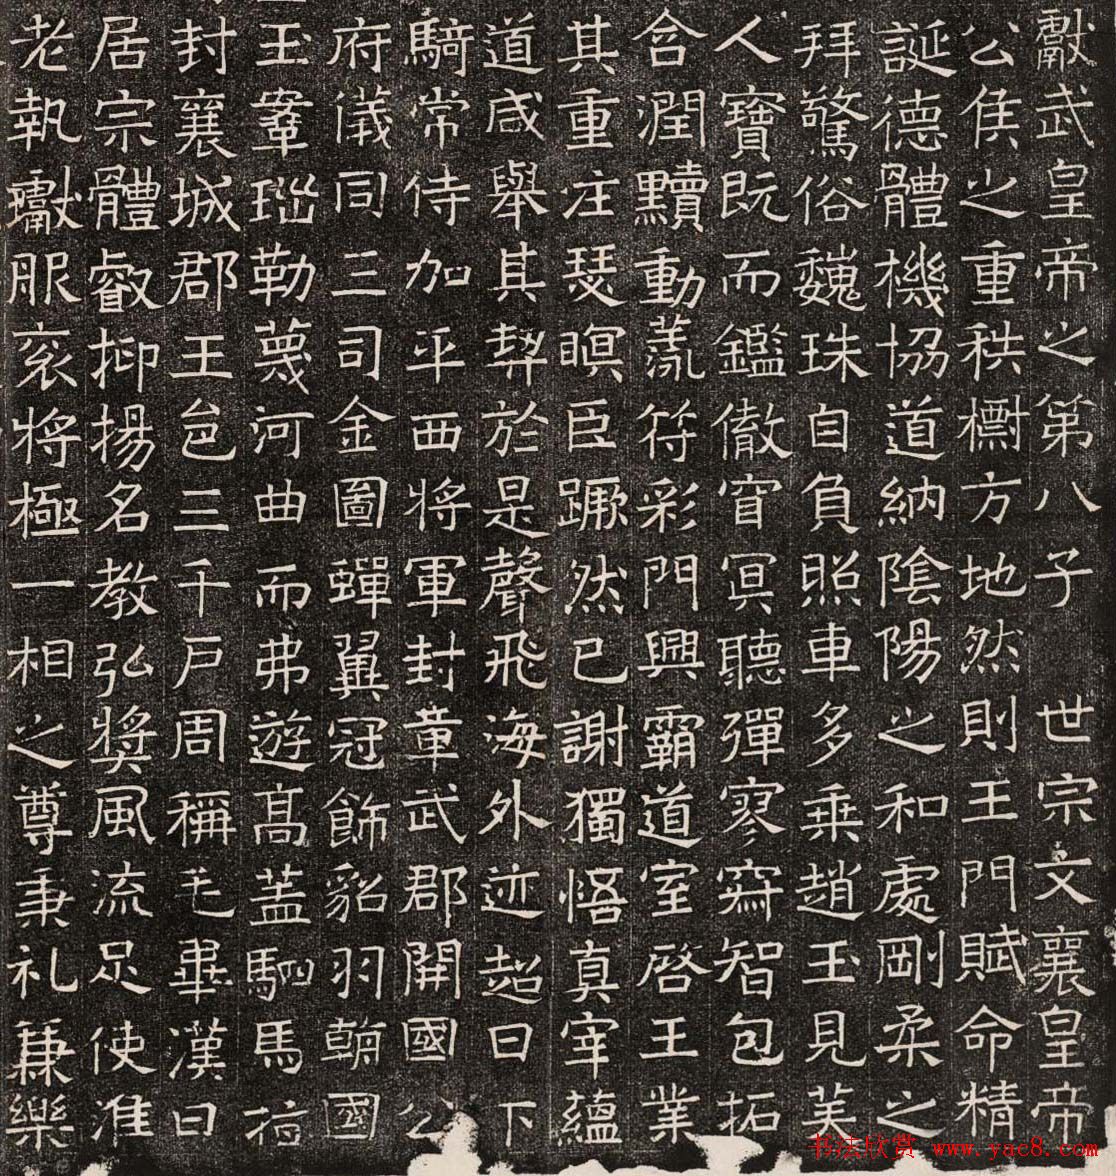 獻武皇帝之第八子世宗文襄皇帝
公侯之重秩檦方地然則王門賦命精
誕德體機協道納陰陽之和處剛柔之
拜驚俗巍珠自負照車多乗趙玉見美
人寶既而鑑儌窅冥聽彈寥窮智包拓
含潤黷動蔬符彩門興霸道室啓王業
其重注瑟瞑臣蹶然已謝獨悟真宰蘊
道咸舉其契於是聲飛海外迹超日下
騎常侍加平西將軍封章武郡開國公
府儀同三司金圖蟬翼冠飾貂羽朝國
玉鞶瑙勒蔑河曲而弗遊髙蓋駟馬
封襄城郡王邑三千戸周稱毛畢漢曰
居宗體叡抑揚名教弘獎風流足使淮
老執獻服衮將極一相之尊秉礼兼樂
书法欣赏 www.yac8.com